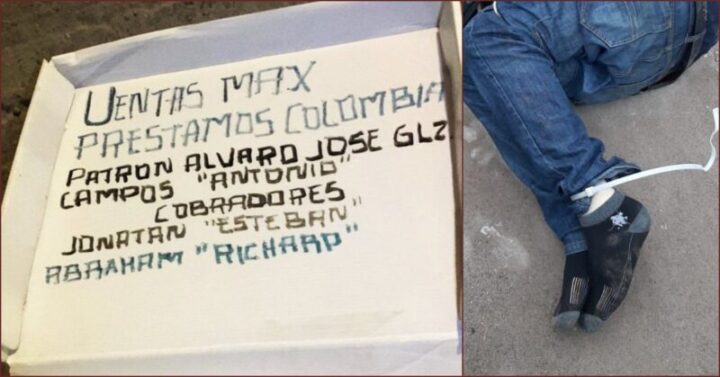 VENTAS MAX
PRESTAMOS COLOMBIA
PATRON ALVARO JOSE GLZ
CAMPOS "ANTONIO"
COBRADORES
JONATAN "ESTEBAN"
ABRAHAM "RICHARD"